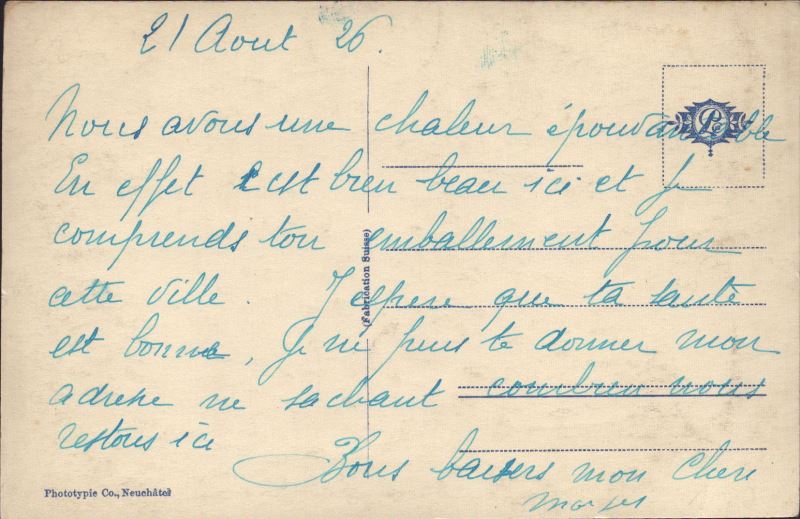 21 Aout 26.
Nous avons une chaleur épouvantable
En effet c'est bien beau ici et je
comprends ton emballement pour
cette ville. J'espere que ta santé
est bonne, je ne puis te donner mon
adresse ne sachant combien nous
restons ici
Bons baisers mon Cheri
(Fabrication Suisse)
Phototypie Co., Neuchâtel